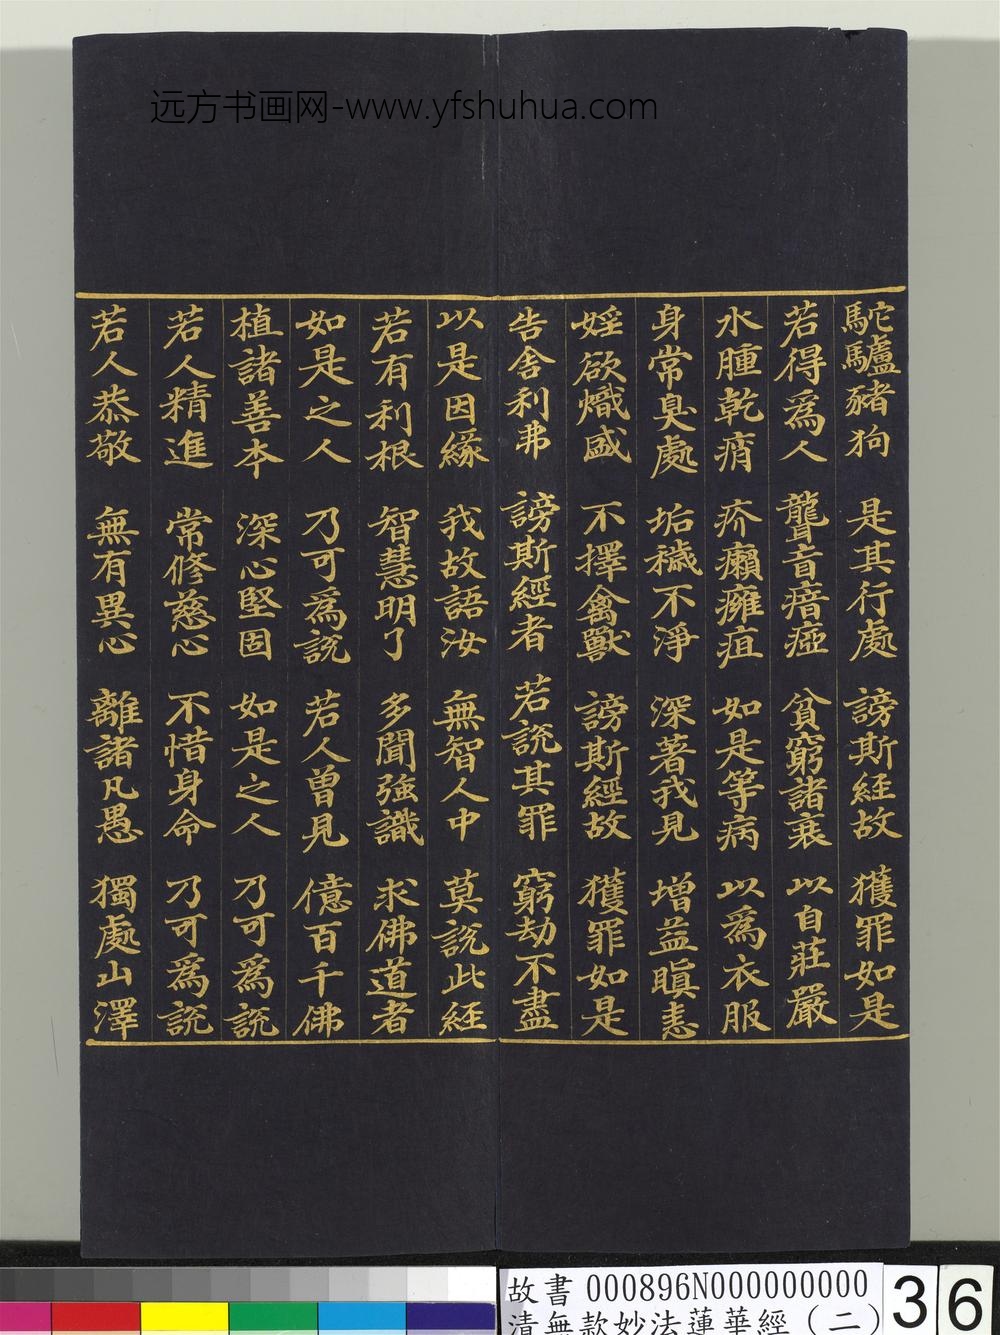 远方书画网-www.yfshuhua.com
駝驢豬狗 是其行處 謗斯經故 獲罪如是
若得爲人 聾盲瘖瘂 貧窮諸衰 以自莊嚴
水腫乾痟 疥癩癰疽 如是等病 以爲衣服
身常臭處 垢穢不淨 深著我見 增益瞋恚
婬欲熾盛 不擇禽獸 謗斯經故 獲罪如是
告舍利弗 謗斯經者 若說其罪 窮劫不盡
以是因緣 我故語汝 無智人中 莫說此經
若有利根 智慧明了 多聞強識 求佛道者
如是之人 乃可爲說 若人曾見 億百千佛
植諸善本 深心堅固 如是之人 乃可爲說
若人精進 常修慈心 不惜身命 乃可爲說
若人恭敬 無有異心 離諸凡愚 獨處山澤
故書 000896N000000000
清無款妙法蓮華經（二）
36